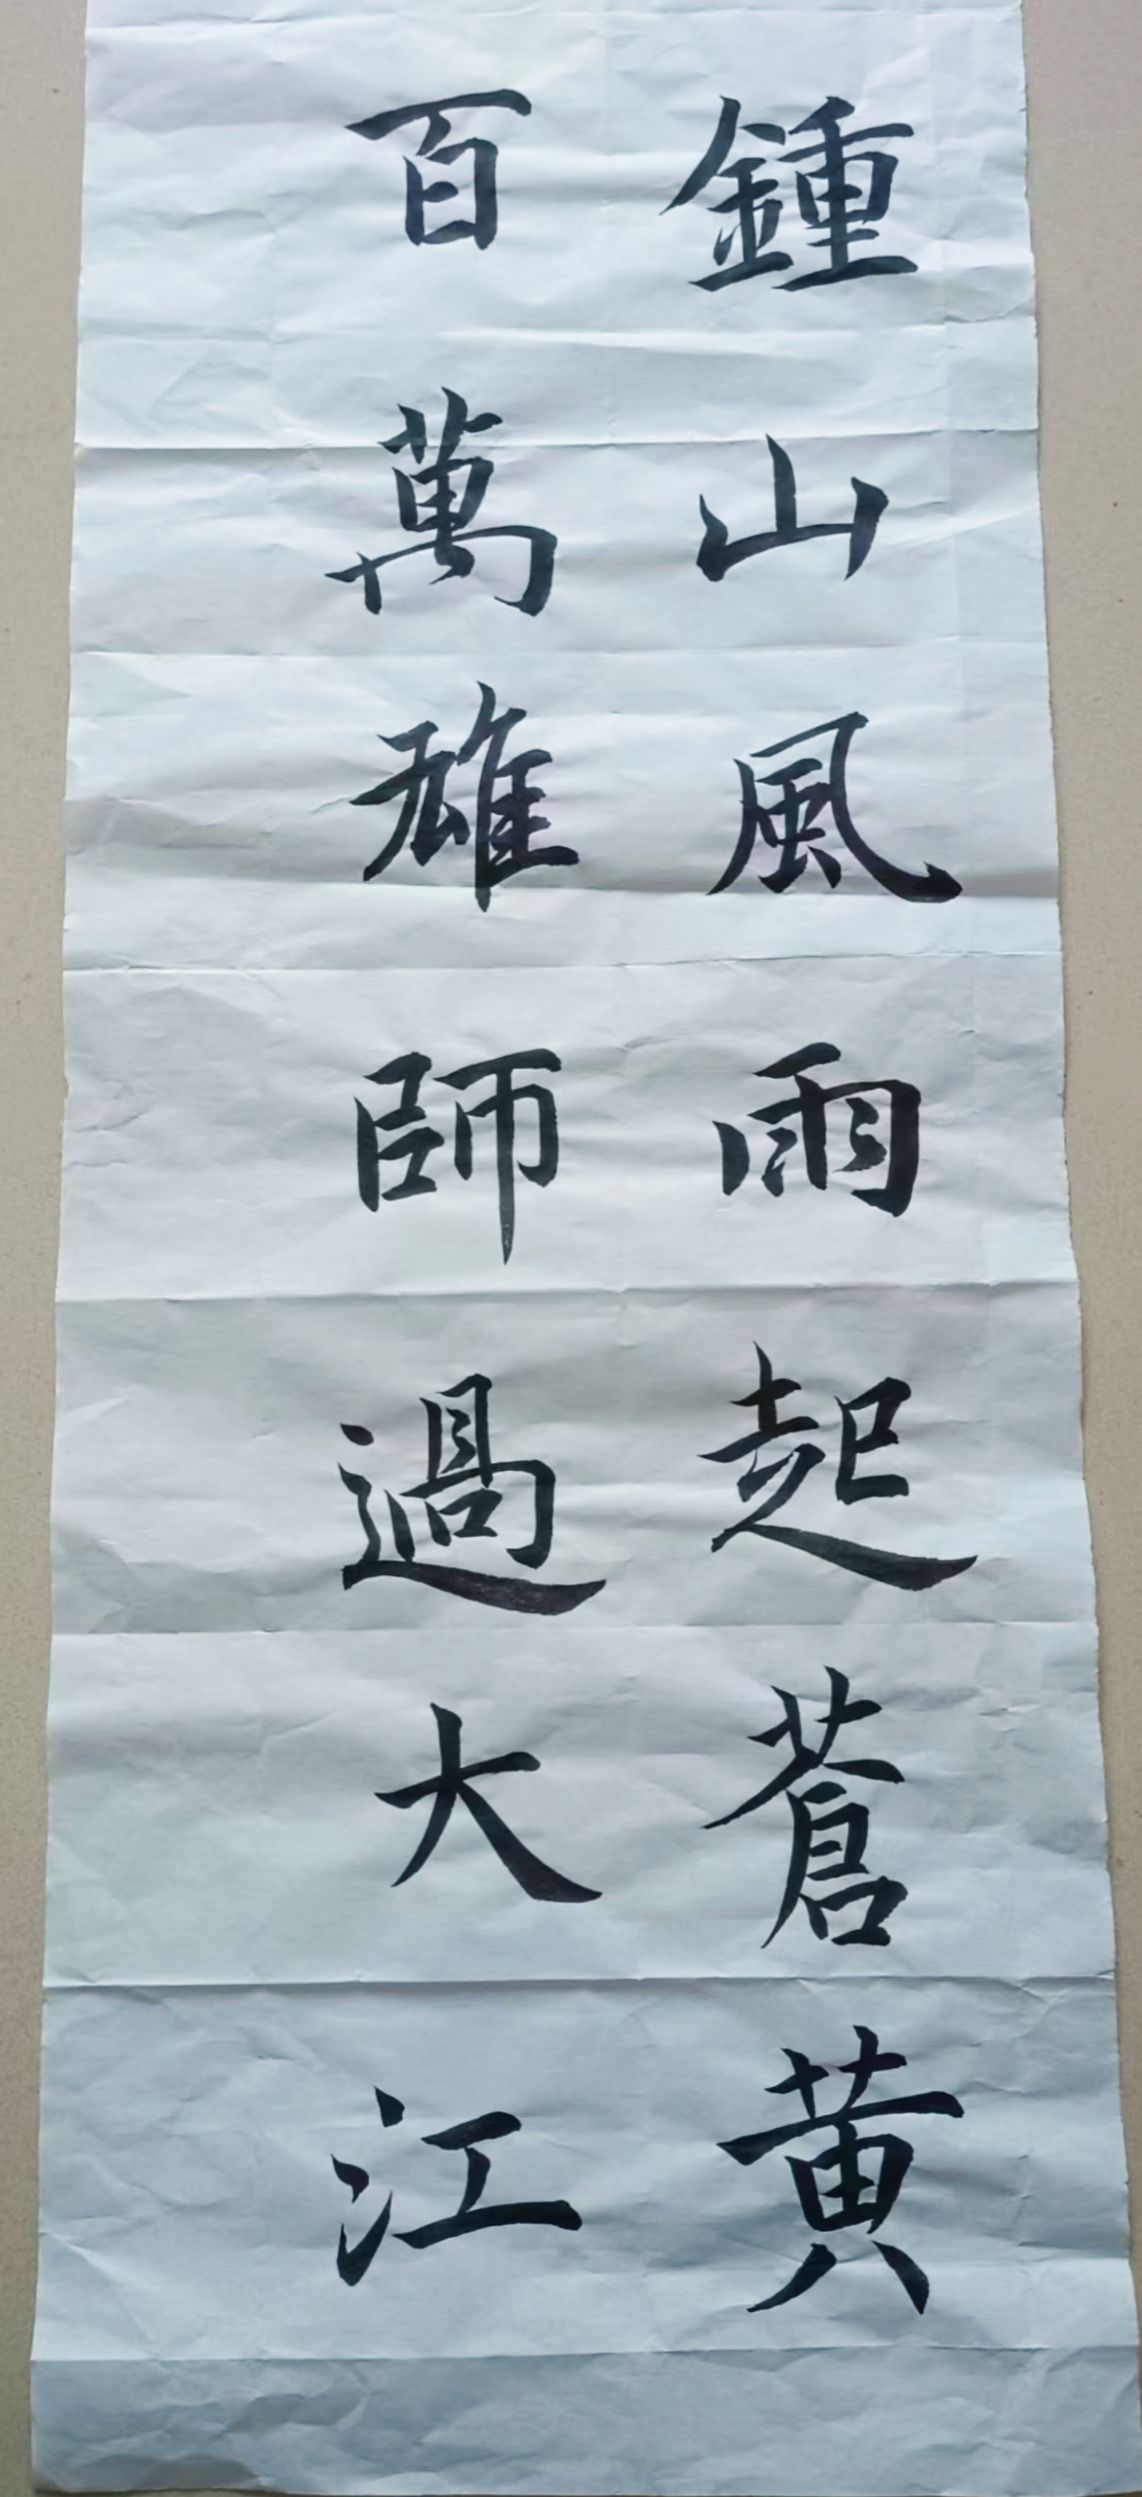 鍾山風雨起蒼黄
百萬雄師過大江